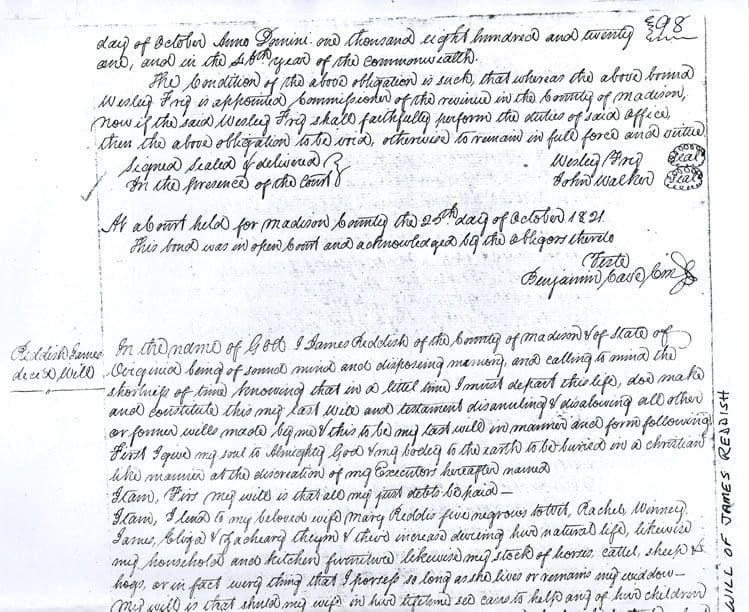 898
day of October Anno Domini one thousand eight hundred and twenty
one, and in the 46th year of the commonwealth.
The Condition of the above obligation is such, that whereas the above bound
Wesley Frig is appointed Commissioner of the revinue in the County of Madison,
Now if the said Wesley Frig shall faithfully perform the duties of said Office,
then the above obligation to be void, otherwise to remain in full force and virtue
Signed Sealed & delivered } Wesley Frig Seal
In the Presence of the Court } John Walker Seal
At a Court held for Madison County the 25th day of October 1821.
This bond was in open Court and acknowledged by the obligors thereto
Teste
Benjamin Cave Cm
Reddish James
deced Will
In the name of God I James Reddish of the County of Madison & of State of
Virginia being of sound mind and disposing memory, and calling to mind the
shortness of time knowing that in a littel time I must depart this life, doe make
and constitute this my last Will and testament disanuling & disalowing all other
or former wills made by me & this to be my last will in manner and form following
First I give my soul to Almighty God & my bodey to the earth to be buried in a christian
like manner at the discreation of my Executors hereafter named
Itam, Firs my will is that all my just debts be paid—
Itam, I lend to my beloved wife Mary Reddis five negrows to wit, Rachel, Winney,
James, Eliza & Zacheary theym & their increase dureing hur natural life, likewise
my household and kitchen furneture likewise my stock of horses, cattel, sheep &
hogs, or in fact every thing that I porsess so long as she lives or remains my widdow—
My will is that shuld my wife in hur lifetime see caus to help any of hur Children
WILL OF JAMES REDDISH